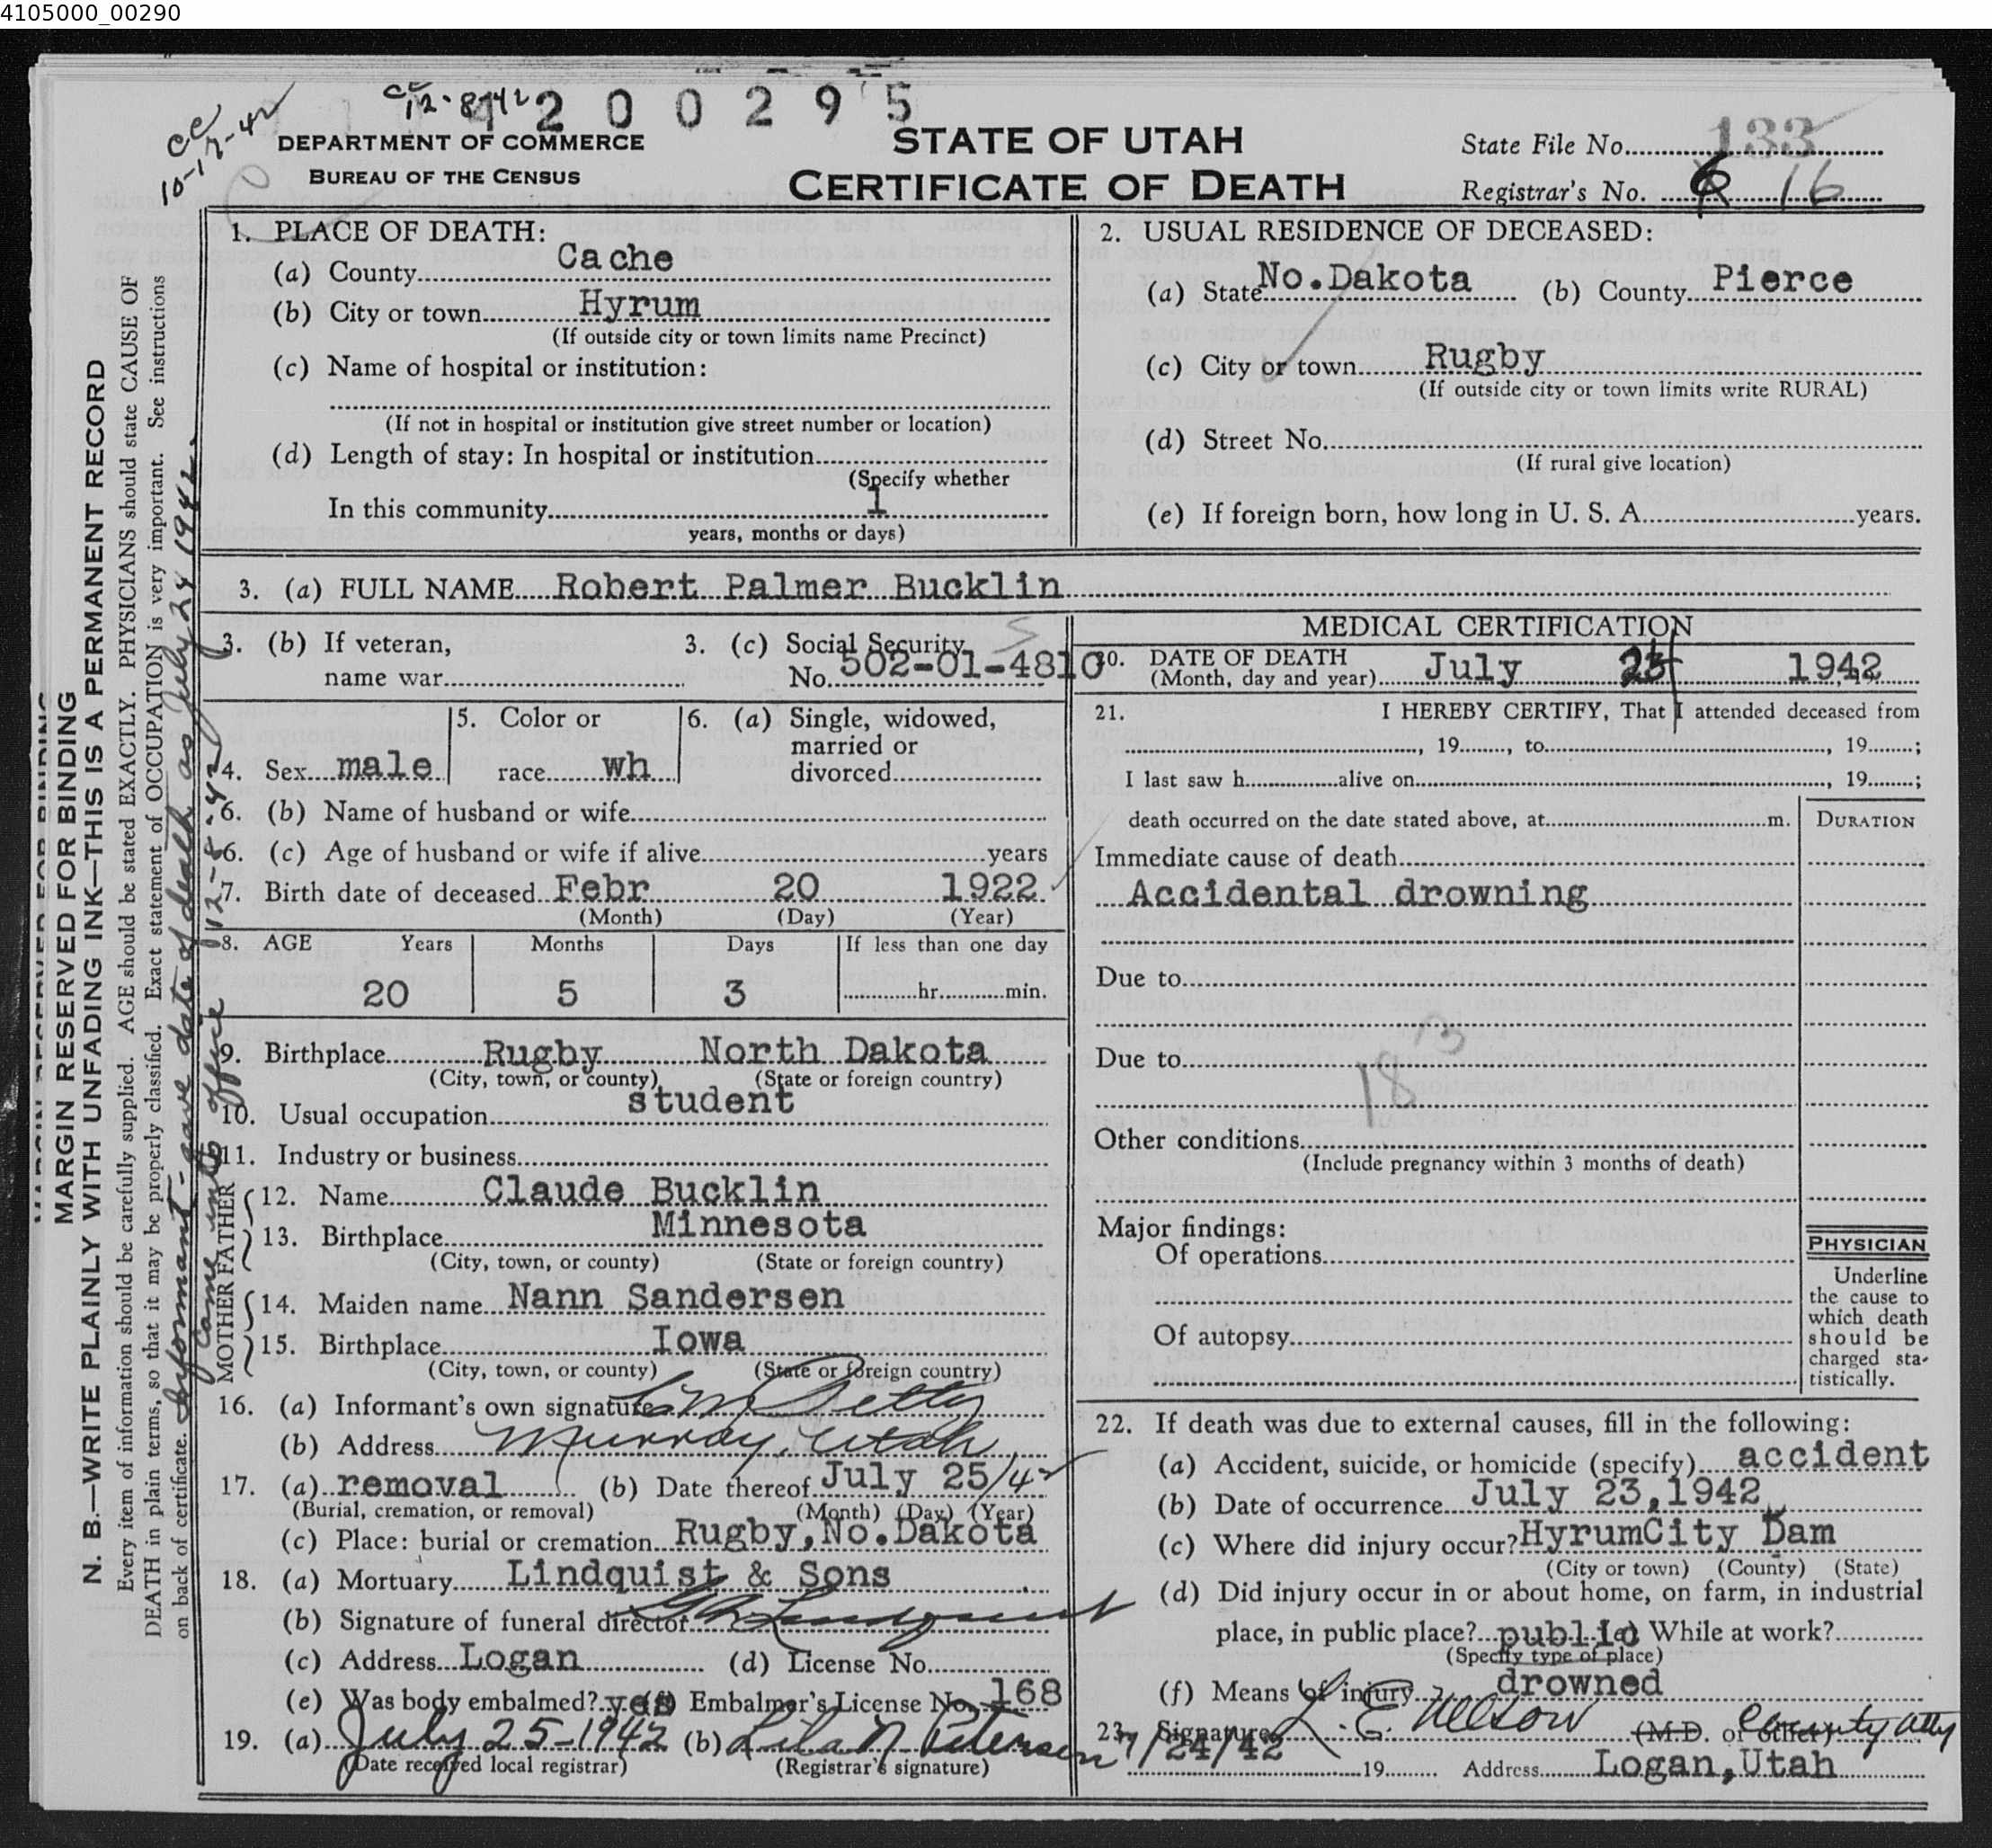 4105000_00290
cc 12-8-42
cc 10-17-42
4200295
DEPARTMENT OF COMMERCE
BUREAU OF THE CENSUS
STATE OF UTAH
CERTIFICATE OF DEATH
State File No. 133
Registrar's No. 16
MARGIN RESERVED FOR BINDING
N. B.—WRITE PLAINLY WITH UNFADING INK—THIS IS A PERMANENT RECORD
Every item of information should be carefully supplied. AGE should be stated EXACTLY. PHYSICIANS should state CAUSE OF
DEATH in plain terms, so that it may be properly classified. Exact statement of OCCUPATION is very important. See instructions
on back of certificate.
Informant - gave date of death as July 24 1942.
Came into office 12-8-42
1. PLACE OF DEATH:
(a) County Cache
(b) City or town Hyrum
(If outside city or town limits name Precinct)
(c) Name of hospital or institution:
(If not in hospital or institution give street number or location)
(d) Length of stay: In hospital or institution
(Specify whether
In this community 1
years, months or days)
2. USUAL RESIDENCE OF DECEASED:
(a) State No.Dakota (b) County Pierce
(c) City or town Rugby
(If outside city or town limits write RURAL)
(d) Street No.
(If rural give location)
(e) If foreign born, how long in U. S. A. years.
3. (a) FULL NAME Robert Palmer Bucklin
3. (b) If veteran,
name war
3. (c) Social Security
No. 502-01-4810
4. Sex male
5. Color or
race wh
6. (a) Single, widowed,
married or
divorced
6. (b) Name of husband or wife
6. (c) Age of husband or wife if alive years
7. Birth date of deceased Febr 20 1922
(Month) (Day) (Year)
8. AGE Years Months Days If less than one day
20 5 3 hr. min.
9. Birthplace Rugby North Dakota
(City, town, or county) (State or foreign country)
10. Usual occupation student
11. Industry or business
FATHER
12. Name Claude Bucklin
13. Birthplace Minnesota
(City, town, or county) (State or foreign country)
MOTHER
14. Maiden name Nann Sandersen
15. Birthplace Iowa
(City, town, or county) (State or foreign country)
16. (a) Informant's own signature
(b) Address Murray, Utah
17. (a) removal (b) Date thereof July 25/42
(Burial, cremation, or removal) (Month) (Day) (Year)
(c) Place: burial or cremation Rugby,No.Dakota
18. (a) Mortuary Lindquist & Sons
(b) Signature of funeral director Lindquist
(c) Address Logan (d) License No.
(e) Was body embalmed? yes (f) Embalmer's License No. 168
19. (a) July 25-1942 (b) Lila N Petersen
(Date received local registrar) (Registrar's signature)
MEDICAL CERTIFICATION
20. DATE OF DEATH
(Month, day and year) July 24 1942
21. I HEREBY CERTIFY, That I attended deceased from
, 19 , to , 19 ;
I last saw h alive on , 19 ;
death occurred on the date stated above, at m.
DURATION
Immediate cause of death
Accidental drowning
Due to
Due to
183
Other conditions
(Include pregnancy within 3 months of death)
Major findings:
Of operations
Of autopsy
PHYSICIAN
Underline
the cause to
which death
should be
charged sta-
tistically.
22. If death was due to external causes, fill in the following:
(a) Accident, suicide, or homicide (specify) accident
(b) Date of occurrence July 23,1942
(c) Where did injury occur? HyrumCity Dam
(City or town) (County) (State)
(d) Did injury occur in or about home, on farm, in industrial
place, in public place? public (e) While at work?
(Specify type of place)
(f) Means of injury drowned
23. Signature L. E. Nelson (M.D. or other) County Atty
7/24/42 19 Address Logan,Utah